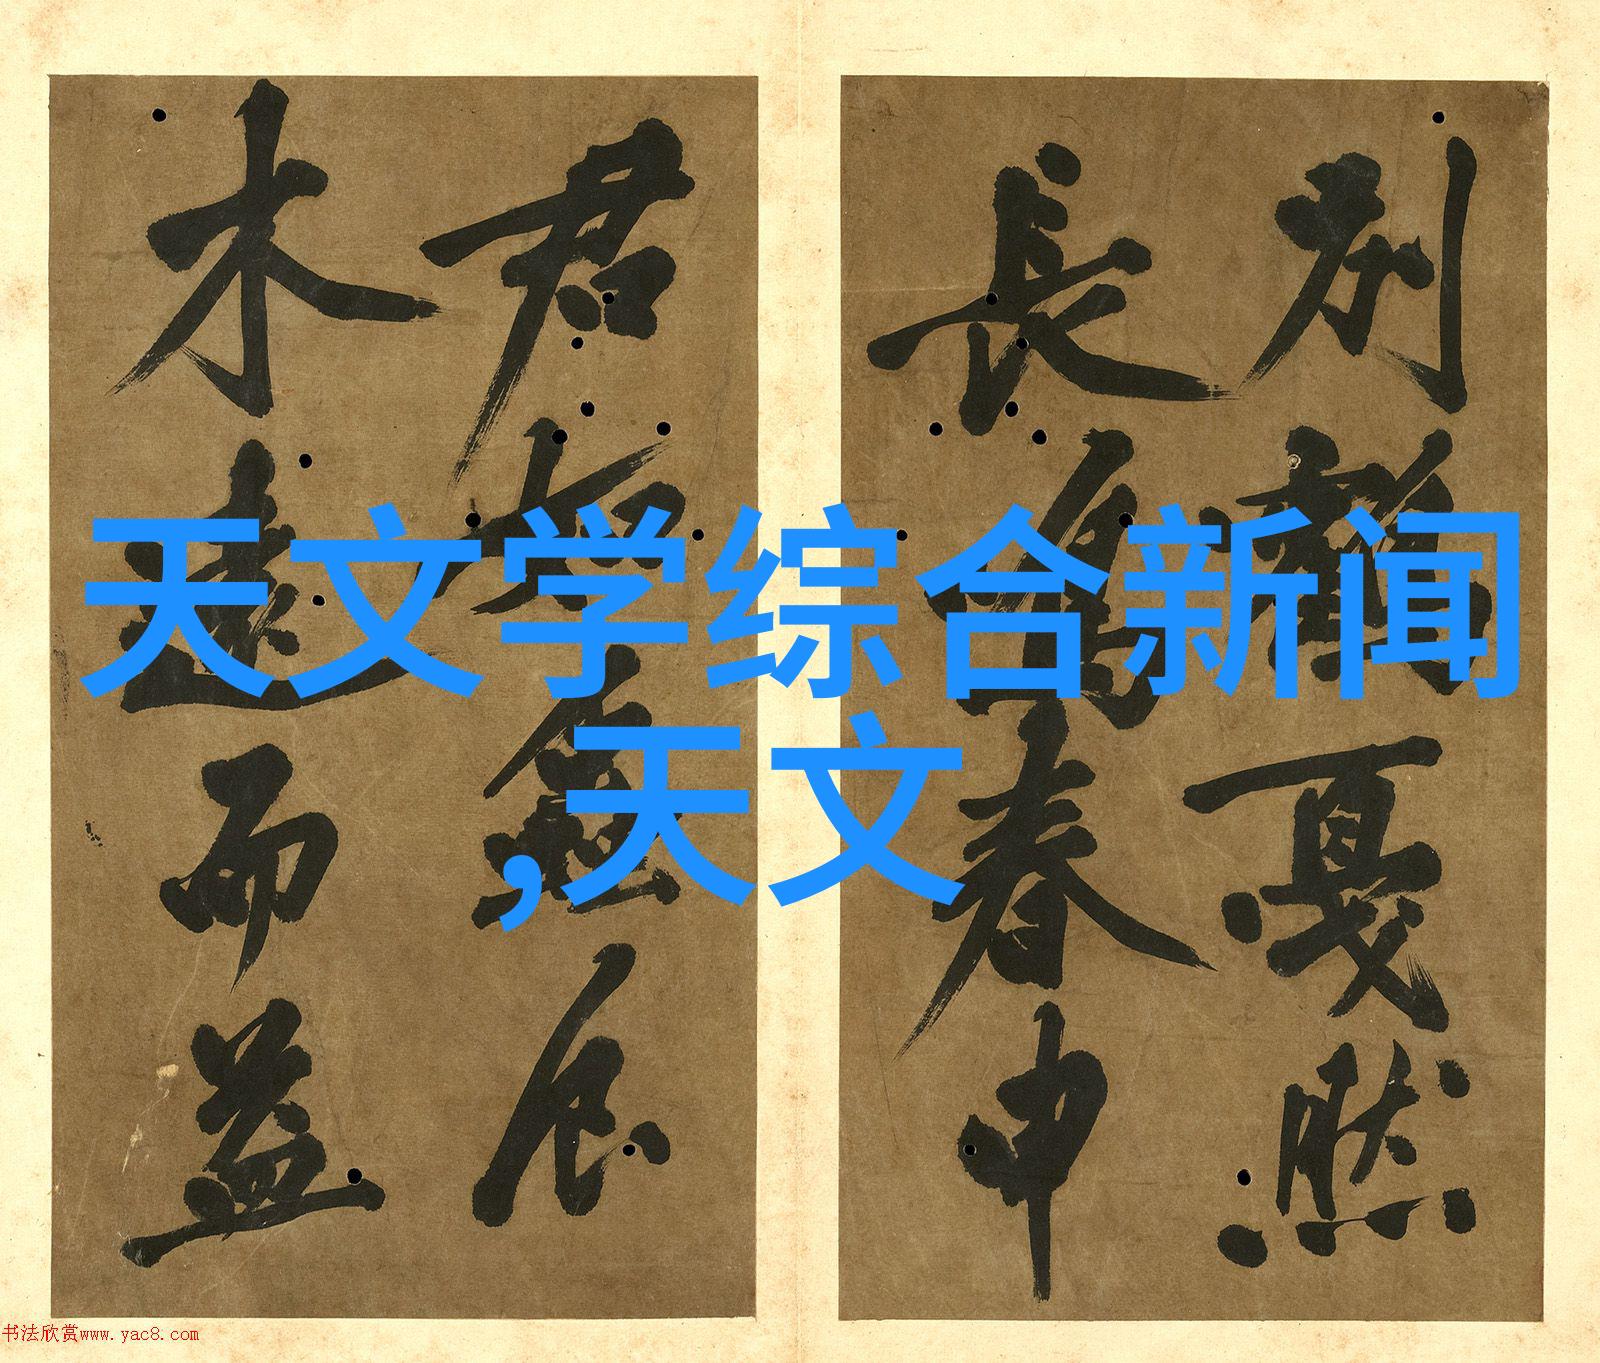 天文学综合新闻
,天文
别鶴戛然
長鳴春申
君
木遠而益
书法欣赏www.yac8.com